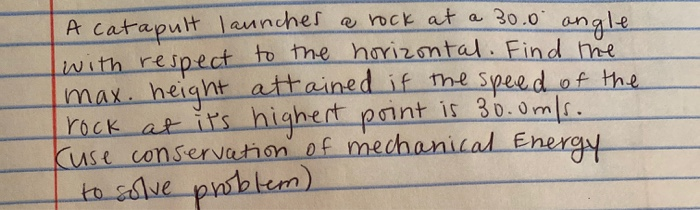 A catapult launches a rock at a 30.0° angle
with respect to the horizontal. Find the
max. height attained if the speed of the
rock at it's highest point is 30.0m/s.
(use conservation of mechanical Energy
to solve problem)